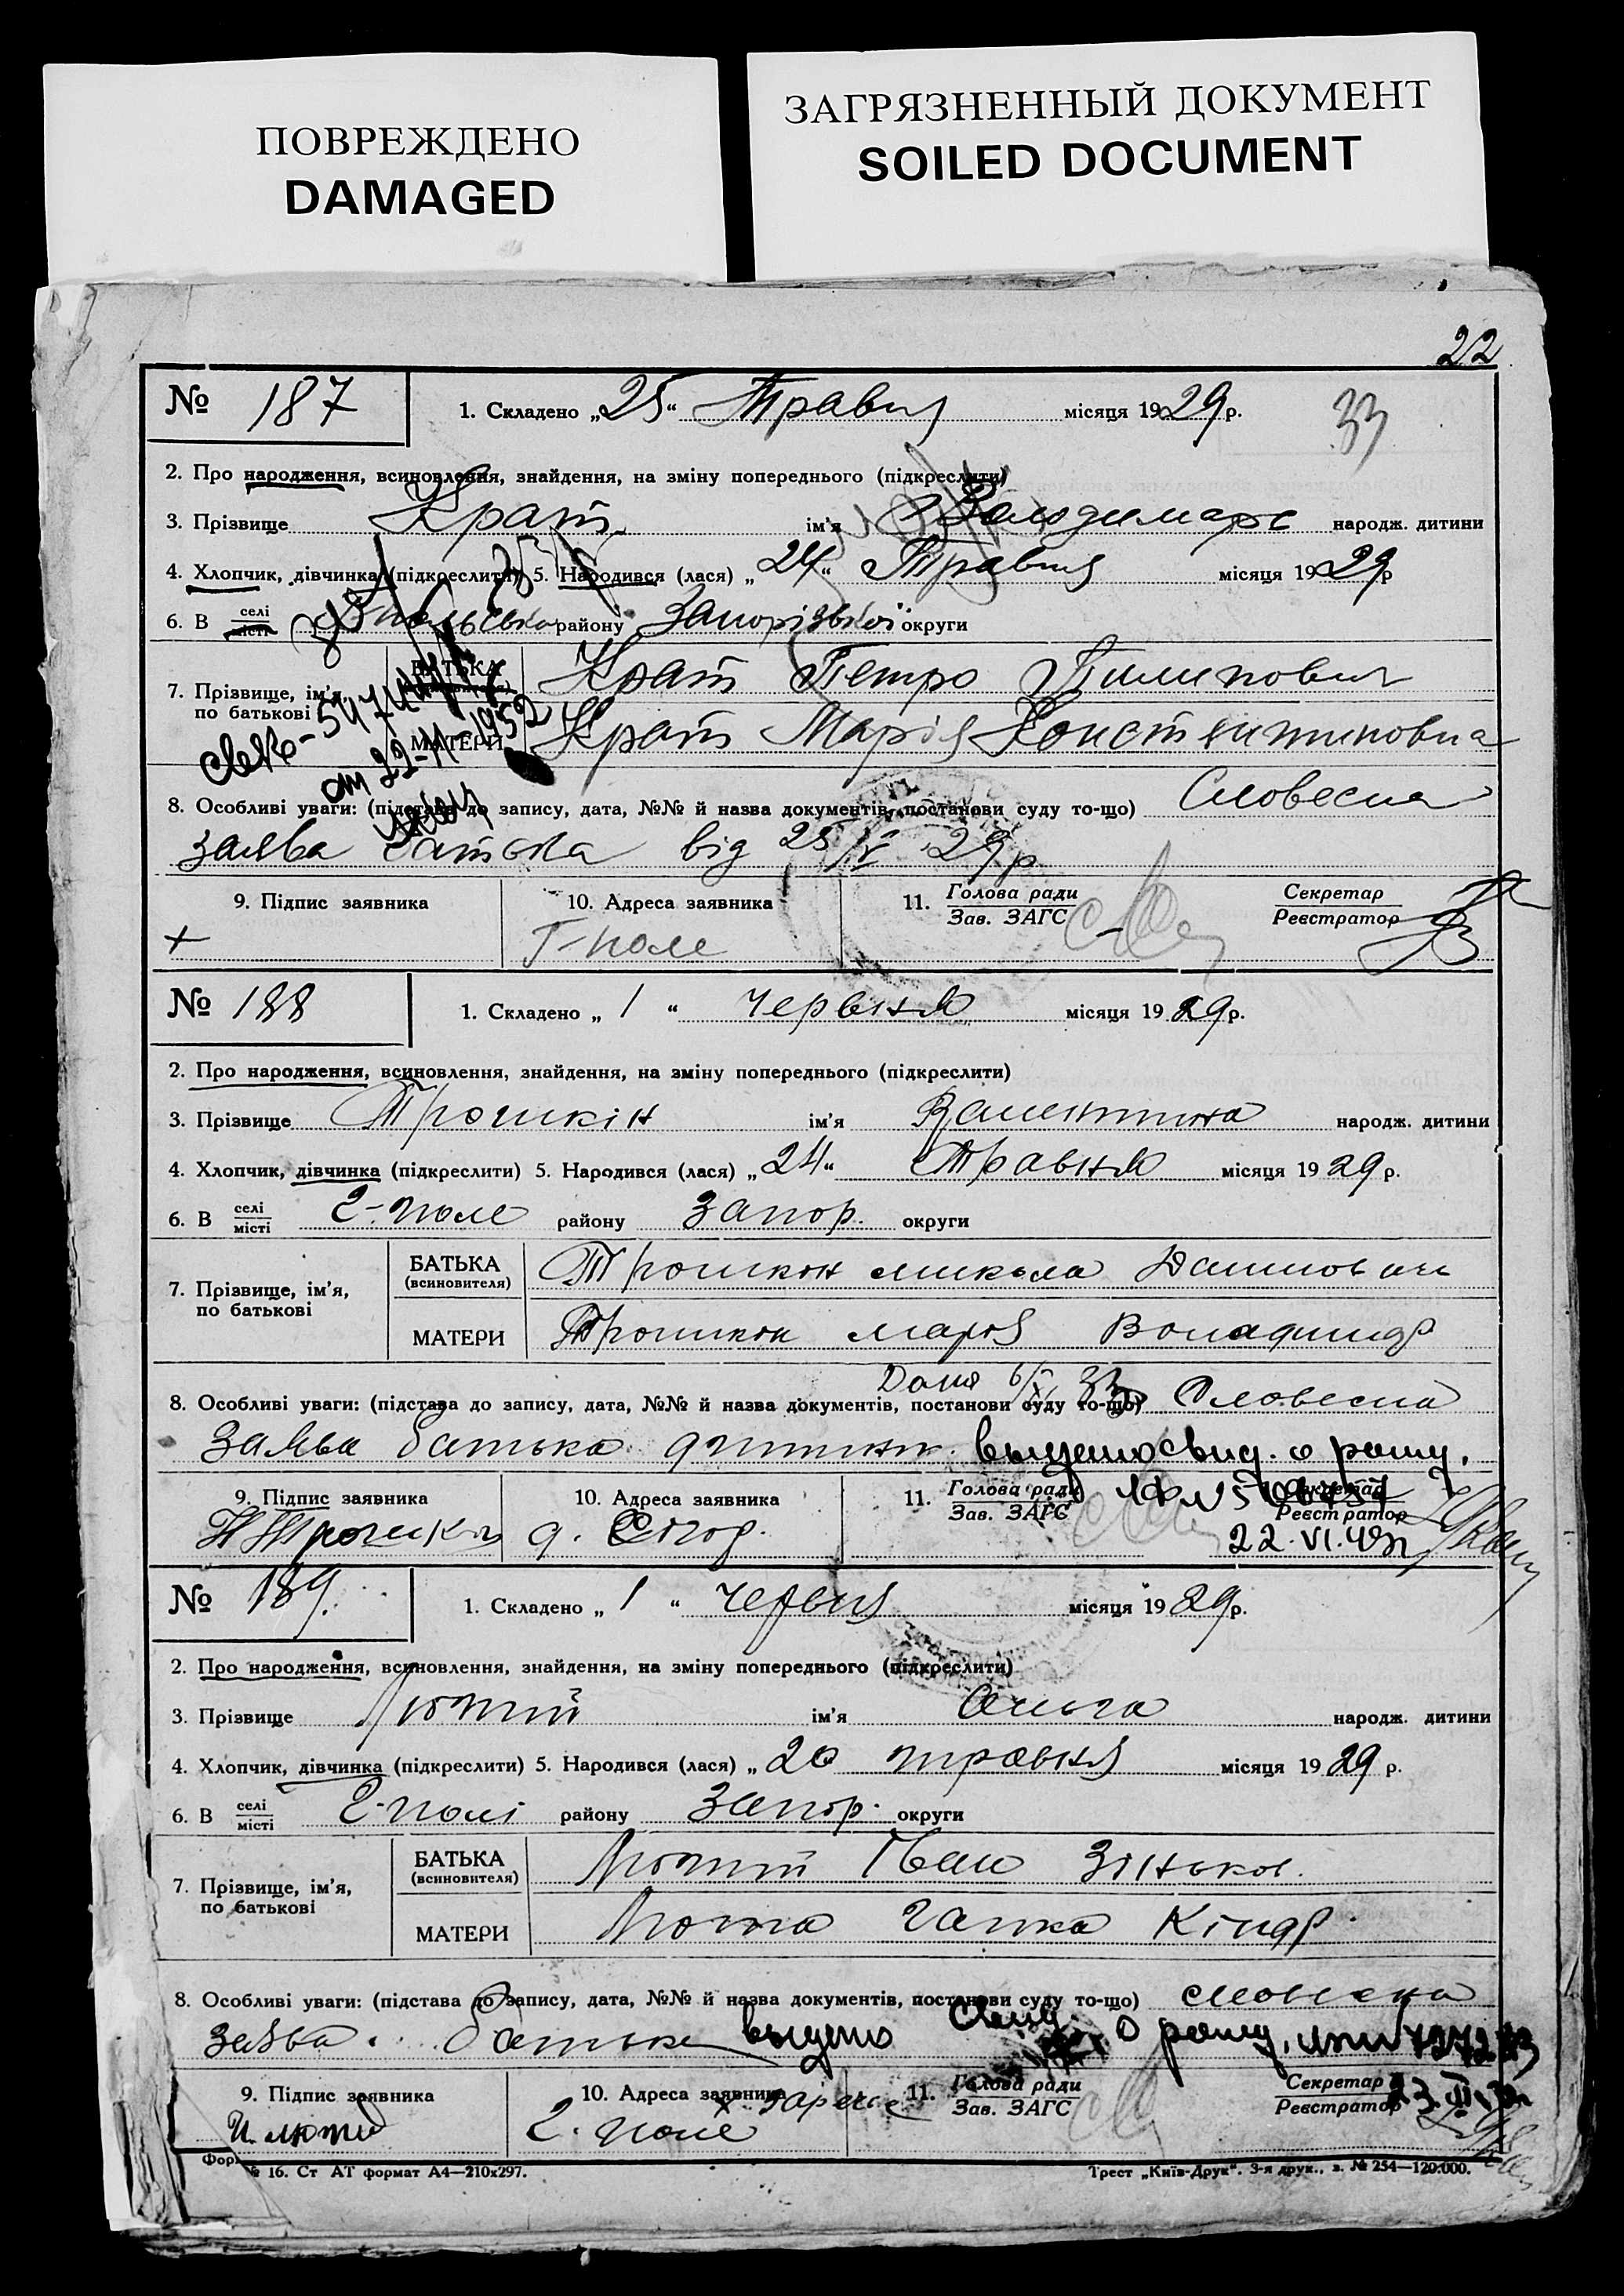 ПОВРЕЖДЕНО
DAMAGED
ЗАГРЯЗНЕННЫЙ ДОКУМЕНТ
SOILED DOCUMENT
22
№ 187 1. Складено „25“ Травня місяця 1929р.
33
2. Про народження, всиновлення, знайдення, на зміну попереднього (підкреслити)
3. Прізвище Крат ім'я Володимарь народж. дитини
4. Хлопчик, дівчинка (підкреслити) 5. Народився (лася) „24“ Травня місяця 1929р
6. В селі місті району Запорізької округи
7. Прізвище, ім'я, по батькові
БАТЬКА Крат Петро Пилипович
МАТЕРИ Крат Марія Констянтиновна
от 22-II-1952
8. Особливі уваги: (підстава до запису, дата, №№ й назва документів, постанови суду то-що) Словесна
заява батька від 25/V 29р
9. Підпис заявника 10. Адреса заявника 11. Голова ради Зав. ЗАГС Секретар Реєстратор
+ Г-поле
№ 188 1. Складено „1“ червня місяця 1929р.
2. Про народження, всиновлення, знайдення, на зміну попереднього (підкреслити)
3. Прізвище Трошкін ім'я Валентина народж. дитини
4. Хлопчик, дівчинка (підкреслити) 5. Народився (лася) „24“ Травня місяця 1929р.
6. В селі місті Г-поле району Запор. округи
7. Прізвище, ім'я, по батькові
БАТЬКА (всиновителя) Трошкін микола
МАТЕРИ Трошкін марія
8. Особливі уваги: (підстава до запису, дата, №№ й назва документів, постанови суду то-що) Словесна
Заява батька дитини. выдано свид. о рожд.
9. Підпис заявника 10. Адреса заявника 11. Голова ради Зав. ЗАГС Секретар Реєстратор
22.VI.49г
№ 189. 1. Складено „1“ червня місяця 1929р.
2. Про народження, всиновлення, знайдення, на зміну попереднього (підкреслити)
3. Прізвище Лютий ім'я Ольга народж. дитини
4. Хлопчик, дівчинка (підкреслити) 5. Народився (лася) „20 травня місяця 1929 р.
6. В селі місті Г-полі району Запор. округи
7. Прізвище, ім'я, по батькові
БАТЬКА (всиновителя) Лютий Іван Зіньков.
МАТЕРИ Люта Гапка Кіндр.
8. Особливі уваги: (підстава до запису, дата, №№ й назва документів, постанови суду то-що) словесна
заява батька выдано свид. о рожд.
9. Підпис заявника 10. Адреса заявника 11. Голова ради Зав. ЗАГС Секретар Реєстратор
И. лютий Г. поле
№ 16. Ст АТ формат А4—210х297.
Трест „Київ-Друк“. 3-я друк., з. № 254—120.000.